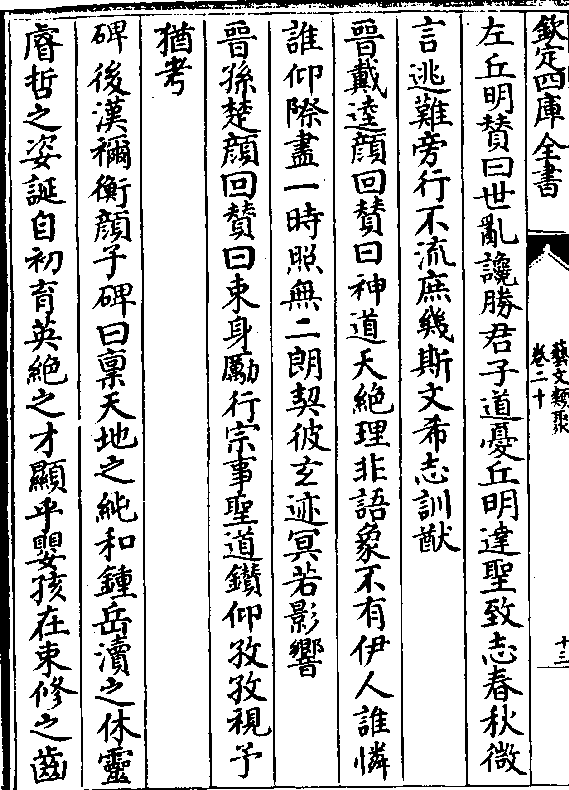 欽定四庫全書
藝文類聚
卷二十
十三
左丘明賛曰世亂讒勝君子道憂丘明達聖致志春秋微
言逃難旁行不流庶幾斯文希志訓猷
晉戴逵顔回賛曰神道天絶理非語象不有伊人誰憐
誰仰際盡一時照無二朗契彼玄迹冥若影響
晉孫楚顔回賛曰束身勵行宗事聖道鑚仰孜孜視予
猶考
碑後漢禰衡顔子碑曰稟天地之純和鍾岳瀆之休靈
睿哲之姿誕自初育英絶之才顯乎嬰孩在束修之齒